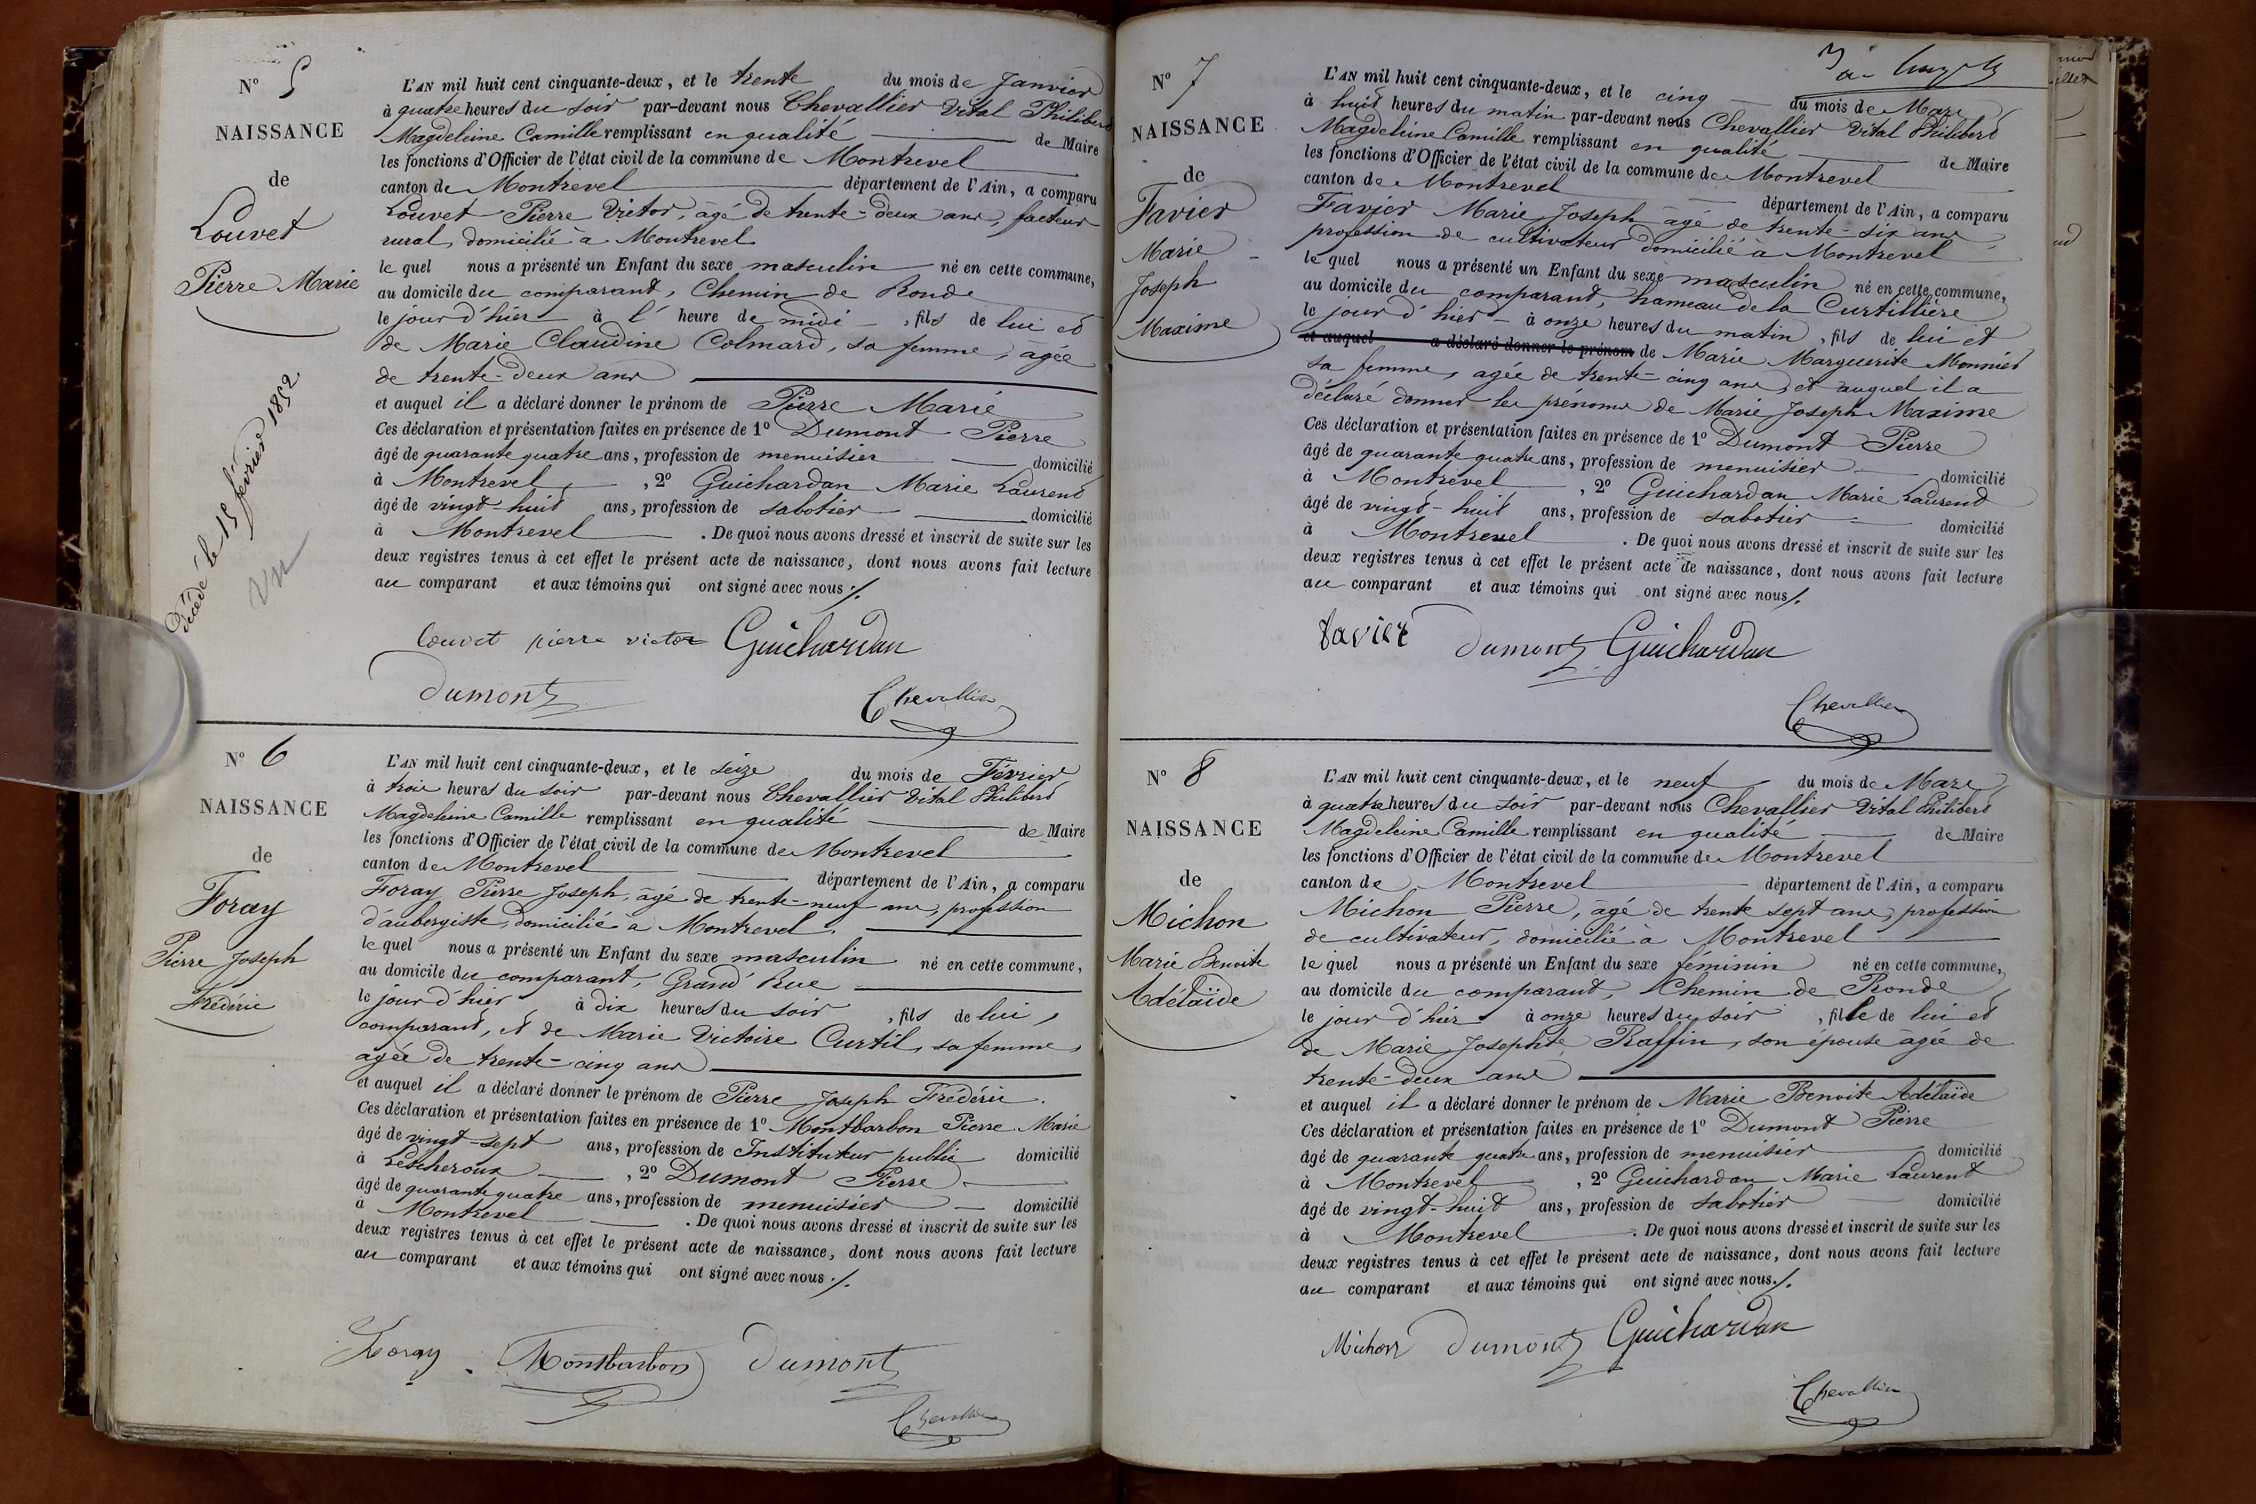 Nº 5
NAISSANCE
de
Louvet
Pierre Marie
Décédé le 15 février 1852
L'AN mil huit cent cinquante-deux, et le trente du mois de Janvier
à quatre heures du soir par-devant nous Chevallier Vital Philibert
Magdeleine Camille remplissant en qualité de Maire
les fonctions d'Officier de l'état civil de la commune de Montrevel
canton de Montrevel département de l'Ain, a comparu
Louvet Pierre Victor, âgé de trente-deux ans, facteur
rural, domicilié à Montrevel
le quel nous a présenté un Enfant du sexe masculin né en cette commune,
au domicile du comparant, Chemin de Ronde
le jour d'hier à l' heure de midi, fils de lui et
de Marie Claudine Colmard, sa femme, âgée
de trente-deux ans
et auquel il a déclaré donner le prénom de Pierre Marie
Ces déclaration et présentation faites en présence de 1º Dumont Pierre
âgé de quarante quatre ans, profession de menuisier domicilié
à Montrevel, 2º Guichardan Marie Laurent
âgé de vingt-huit ans, profession de sabotier domicilié
à Montrevel. De quoi nous avons dressé et inscrit de suite sur les
deux registres tenus à cet effet le présent acte de naissance, dont nous avons fait lecture
au comparant et aux témoins qui ont signé avec nous ./.
Louvet pierre victor Guichardan
Dumont
Chevallier
Nº 6
NAISSANCE
de
Foray
Pierre Joseph
Frédéric
L'AN mil huit cent cinquante-deux, et le seize du mois de Février
à trois heures du soir par-devant nous Chevallier Vital Philibert
Magdeleine Camille remplissant en qualité de Maire
les fonctions d'Officier de l'état civil de la commune de Montrevel
canton de Montrevel département de l'Ain, a comparu
Foray Pierre Joseph, âgé de trente-neuf ans, profession
d'aubergiste, domicilié à Montrevel.
le quel nous a présenté un Enfant du sexe masculin né en cette commune,
au domicile du comparant, Grand' Rue
le jour d'hier à dix heures du soir, fils de lui,
comparant, et de Marie Victoire Curtil, sa femme,
agée de trente-cinq ans
et auquel il a déclaré donner le prénom de Pierre Joseph Frédéric.
Ces déclaration et présentation faites en présence de 1º Montbarbon Pierre Marie
âgé de vingt-sept ans, profession de Instituteur public domicilié
à Lescheroux, 2º Dumont Pierre
âgé de quarante quatre ans, profession de menuisier domicilié
à Montrevel. De quoi nous avons dressé et inscrit de suite sur les
deux registres tenus à cet effet le présent acte de naissance, dont nous avons fait lecture
au comparant et aux témoins qui ont signé avec nous ./.
Foray Montbarbon Dumont
Chevallier
Nº 7
NAISSANCE
de
Favier
Marie
Joseph
Maxime
L'AN mil huit cent cinquante-deux, et le cinq du mois de Mars
à huit heures du matin par-devant nous Chevallier Vital Philibert
Magdeleine Camille remplissant en qualité de Maire
les fonctions d'Officier de l'état civil de la commune de Montrevel
canton de Montrevel département de l'Ain, a comparu
Favier Marie Joseph âgé de trente-six ans,
profession de cultivateur domicilié à Montrevel
le quel nous a présenté un Enfant du sexe masculin né en cette commune,
au domicile du comparant, hameau de la Curtillière
le jour d'hier à onze heures du matin, fils de lui et
et auquel a déclaré donner le prénom de Marie Marguerite Monnier
sa femme, agée de trente-cinq ans, et auquel il a
déclaré donner les prénoms de Marie Joseph Maxime
Ces déclaration et présentation faites en présence de 1º Dumont Pierre
âgé de quarante quatre ans, profession de menuisier domicilié
à Montrevel, 2º Guichardan Marie Laurent
âgé de vingt-huit ans, profession de sabotier domicilié
à Montrevel. De quoi nous avons dressé et inscrit de suite sur les
deux registres tenus à cet effet le présent acte de naissance, dont nous avons fait lecture
au comparant et aux témoins qui ont signé avec nous ./.
favier Dumont Guichardan
Chevallier
Nº 8
NAISSANCE
de
Michon
Marie Benoite
Adélaïde
L'AN mil huit cent cinquante-deux, et le neuf du mois de Mars
à quatre heures du soir par-devant nous Chevallier Vital Philibert
Magdeleine Camille remplissant en qualité de Maire
les fonctions d'Officier de l'état civil de la commune de Montrevel
canton de Montrevel département de l'Ain, a comparu
Michon Pierre, âgé de trente sept ans, profession
de cultivateur, domicilié à Montrevel
le quel nous a présenté un Enfant du sexe féminin né en cette commune,
au domicile du comparant, Chemin de Ronde
le jour d'hier à onze heures du soir, fille de lui et
de Marie Josephte Raffin, son épouse âgée de
trente-deux ans
et auquel il a déclaré donner le prénom de Marie Benoite Adélaïde
Ces déclaration et présentation faites en présence de 1º Dumont Pierre
âgé de quarante quatre ans, profession de menuisier domicilié
à Montrevel, 2º Guichardan Marie Laurent
âgé de vingt-huit ans, profession de sabotier domicilié
à Montrevel. De quoi nous avons dressé et inscrit de suite sur les
deux registres tenus à cet effet le présent acte de naissance, dont nous avons fait lecture
au comparant et aux témoins qui ont signé avec nous ./.
Michon Dumont Guichardan
Chevallier